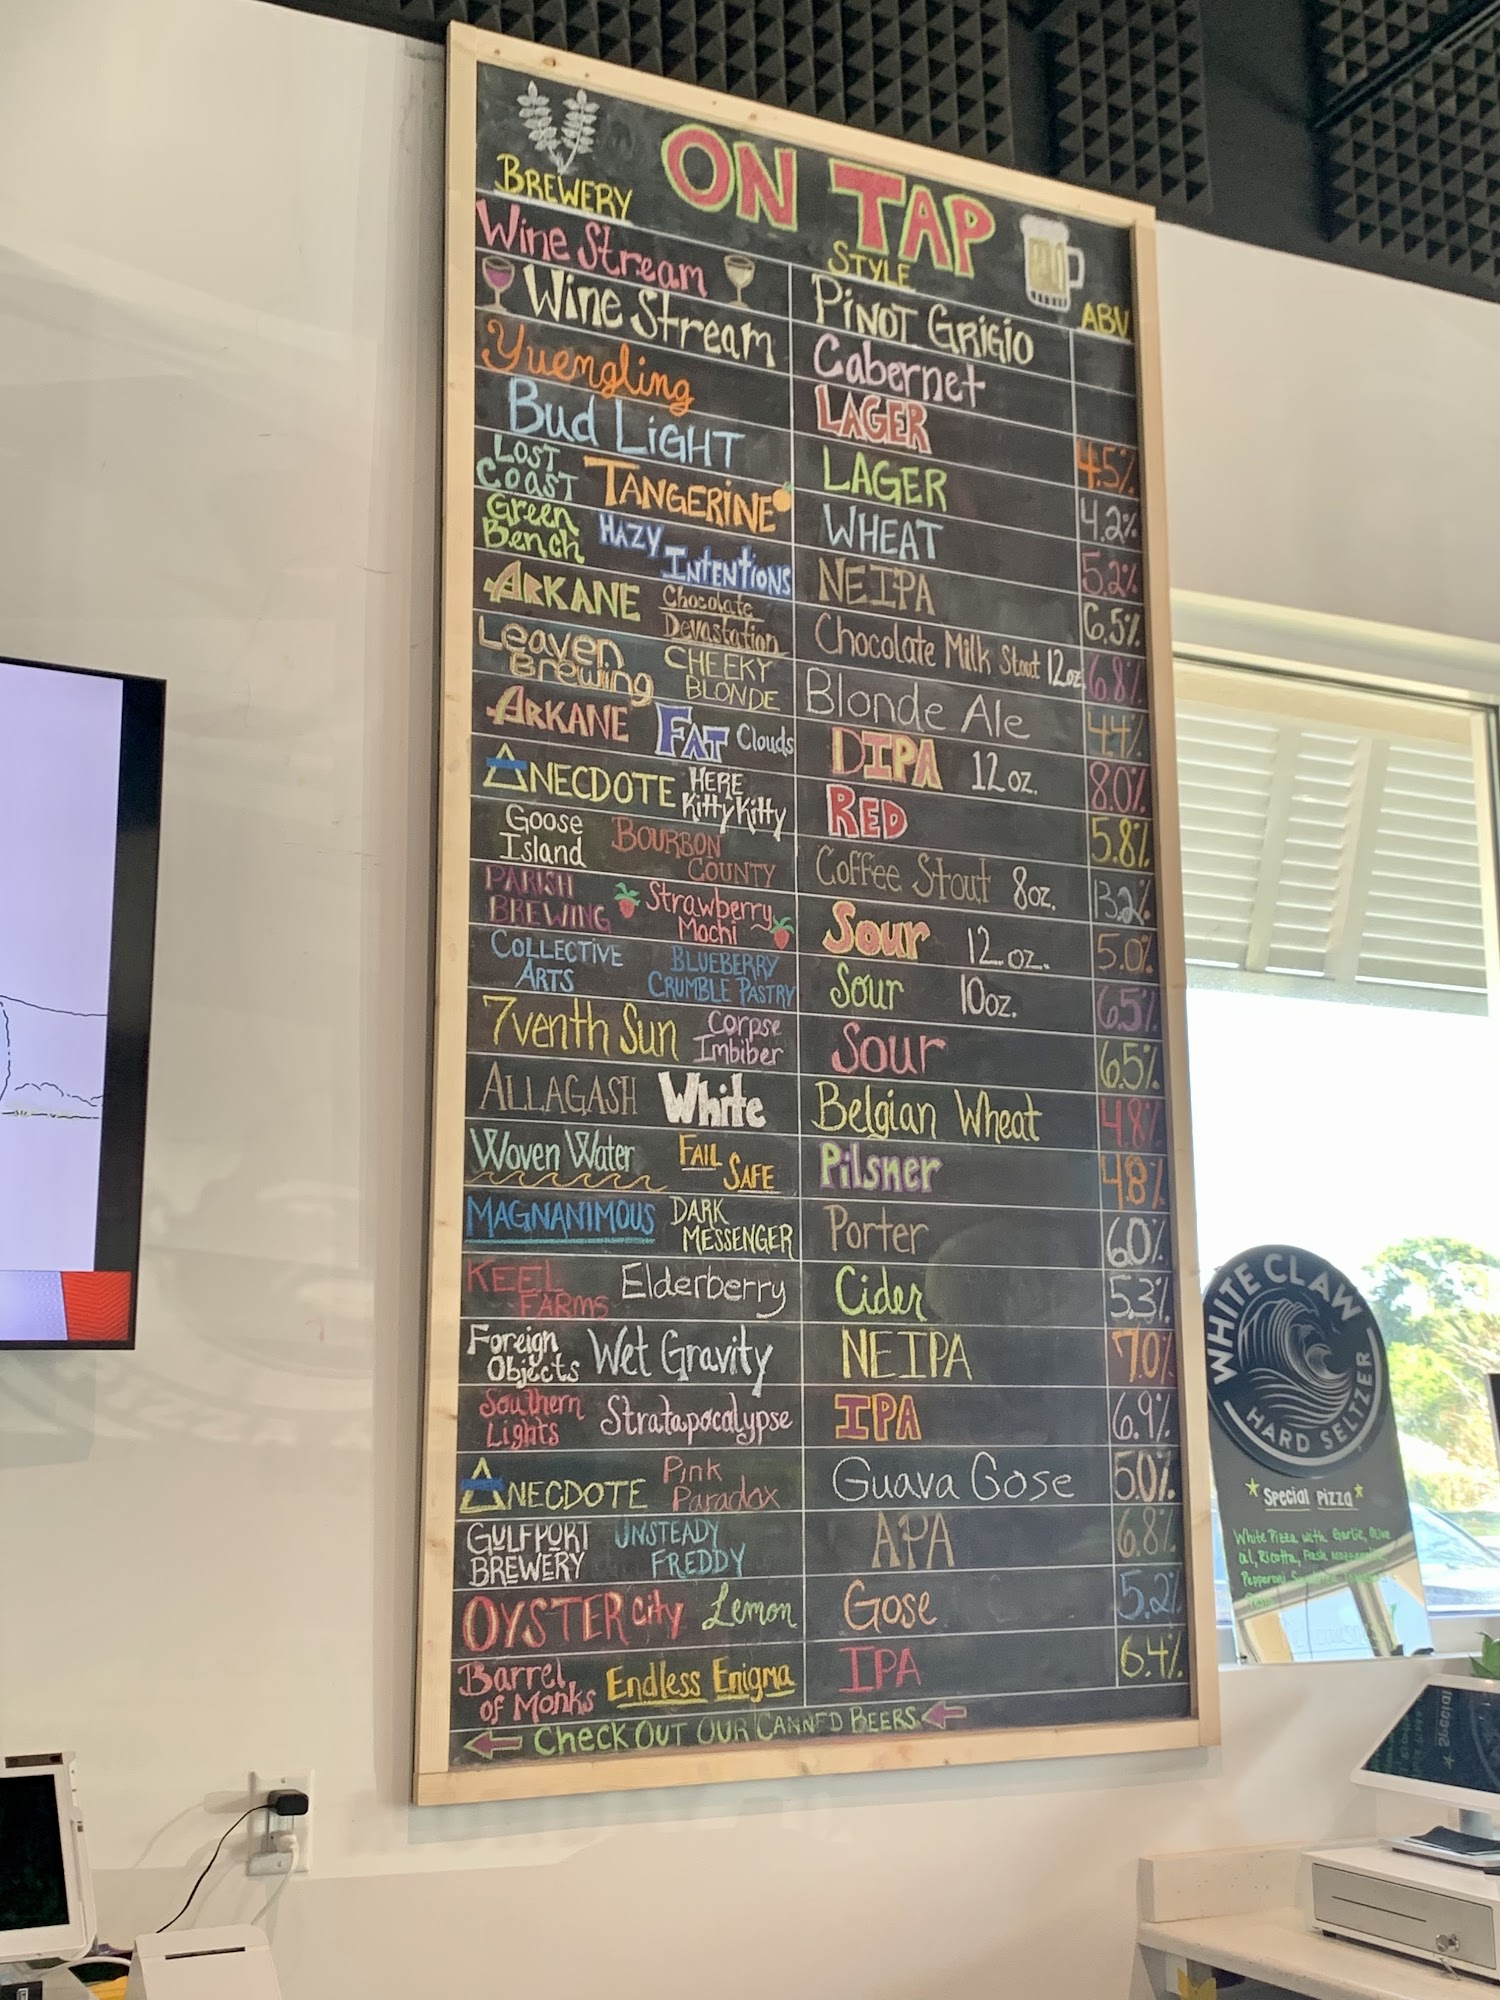 ON TAP
BREWERY STYLE ABV
Wine Stream PINOT GRIGIO
Wine Stream Cabernet
Yuengling LAGER 4.5%
Bud LiGHT LAGER 4.2%
LOST COAST TANGERINE WHEAT 5.2%
Green Bench HAZY INTENTIONS NEIPA 6.5%
ARKANE Chocolate Devastation Chocolate Milk Stout 12oz 6.8%
Leaven Brewing CHEEKY BLONDE Blonde Ale 4.4%
ARKANE FAT Clouds DIPA 12oz. 8.0%
ANECDOTE HERE Kitty Kitty RED 5.8%
Goose Island BOURBON COUNTY Coffee Stout 8oz. 13.2%
PARISH BREWING Strawberry Mochi Sour 12oz. 5.0%
COLLECTIVE ARTS BLUEBERRY CRUMBLE PASTRY Sour 10oz. 6.5%
7venth Sun Corpse Imbiber Sour 6.5%
ALLAGASH White Belgian Wheat 4.8%
Woven Water FAIL SAFE Pilsner 4.8%
MAGNANIMOUS DARK MESSENGER Porter 6.0%
KEEL FARMS Elderberry Cider 5.3%
Foreign Objects Wet Gravity NEIPA 7.0%
Southern Lights Stratapocalypse IPA 6.9%
ANECDOTE Pink Paradox Guava Gose 5.0%
GULFPORT BREWERY UNSTEADY FREDDY APA 6.8%
OYSTER City Lemon Gose 5.2%
Barrel of Monks Endless Enigma IPA 6.4%
CHECK OUT OUR CANNED BEERS
WHITE CLAW
HARD SELTZER
Special Pizza
White Pizza with Garlic, Olive
oil, Ricotta, Fresh mozzarella,
Pepperoni